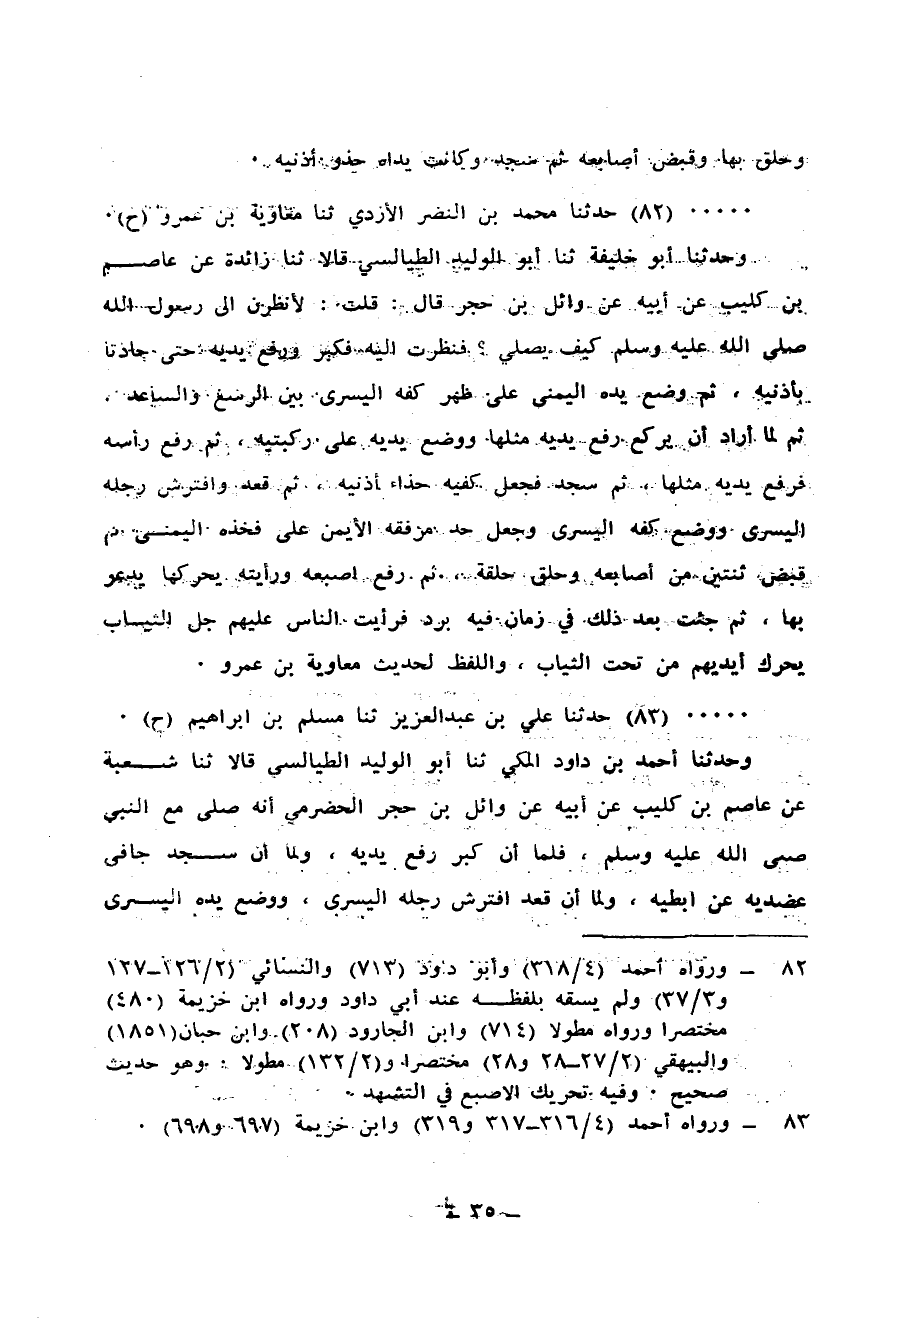 وحلق بها وقبض أصابعه ثم سجد وكانت يداه حذو أذنيه ٠
٠٠٠٠٠ (٨٢) حدثنا محمد بن النضر الأزدي ثنا معاوية بن عمرو (ح)٠
وحدثنا أبو خليفة ثنا أبو الوليد الطيالسي قالا ثنا زائدة عن عاصم
بن كليب عن أبيه عن وائل بن حجر قال : قلت : لأنظرن الى رسول الله
صلى الله عليه وسلم كيف يصلي ؟ فنظرت اليه فكبر ورفع يديه حتى حاذتا
بأذنيه ، ثم وضع يده اليمنى على ظهر كفه اليسرى بين الرسغ والساعد ،
ثم لما أراد أن يركع رفع يديه مثلها ووضع يديه على ركبتيه ، ثم رفع رأسه
فرفع يديه مثلها ، ثم سجد فجعل كفيه حذاء أذنيه ، ثم قعد وافترش رجله
اليسرى ووضع كفه اليسرى وجعل حد مرفقه الأيمن على فخذه اليمنى ثم
قبض ثنتين من أصابعه وحلق حلقة ، ثم رفع اصبعه ورأيته يحركها يدعو
بها ، ثم جئت بعد ذلك في زمان فيه برد فرأيت الناس عليهم جل الثياب
يحرك أيديهم من تحت الثياب ، واللفظ لحديث معاوية بن عمرو ٠
٠٠٠٠٠ (٨٣) حدثنا علي بن عبدالعزيز ثنا مسلم بن ابراهيم (ح) ٠
وحدثنا أحمد بن داود المكي ثنا أبو الوليد الطيالسي قالا ثنا شعبة
عن عاصم بن كليب عن أبيه عن وائل بن حجر الحضرمي أنه صلى مع النبي
صلى الله عليه وسلم ، فلما أن كبر رفع يديه ، ولما أن سجد جافى
عضديه عن ابطيه ، ولما أن قعد افترش رجله اليسرى ، ووضع يده اليسرى
٨٢ – ورواه أحمد (٣١٨/٤) وأبو داود (٧١٣) والنسائي (١٢٦/٢–١٢٧
و٣٧/٣) ولم يسقه بلفظه عند أبي داود ورواه ابن خزيمة (٤٨٠)
مختصرا ورواه مطولا (٧١٤) وابن الجارود (٢٠٨) وابن حبان(١٨٥١)
والبيهقي (٢٧/٢–٢٨ و٢٨) مختصرا و(١٣٢/٢) مطولا : وهو حديث
صحيح ٠ وفيه تحريك الاصبع في التشهد ٠
٨٣ – ورواه أحمد (٣١٦/٤–٣١٧ و٣١٩) وابن خزيمة (٦٩٧ و٦٩٨) ٠
– ٣٥ –